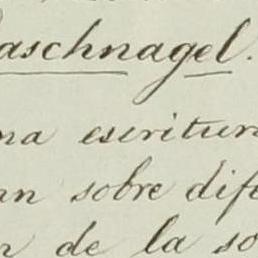 aschnagel.
na escritur
an sobre dif
n de la so